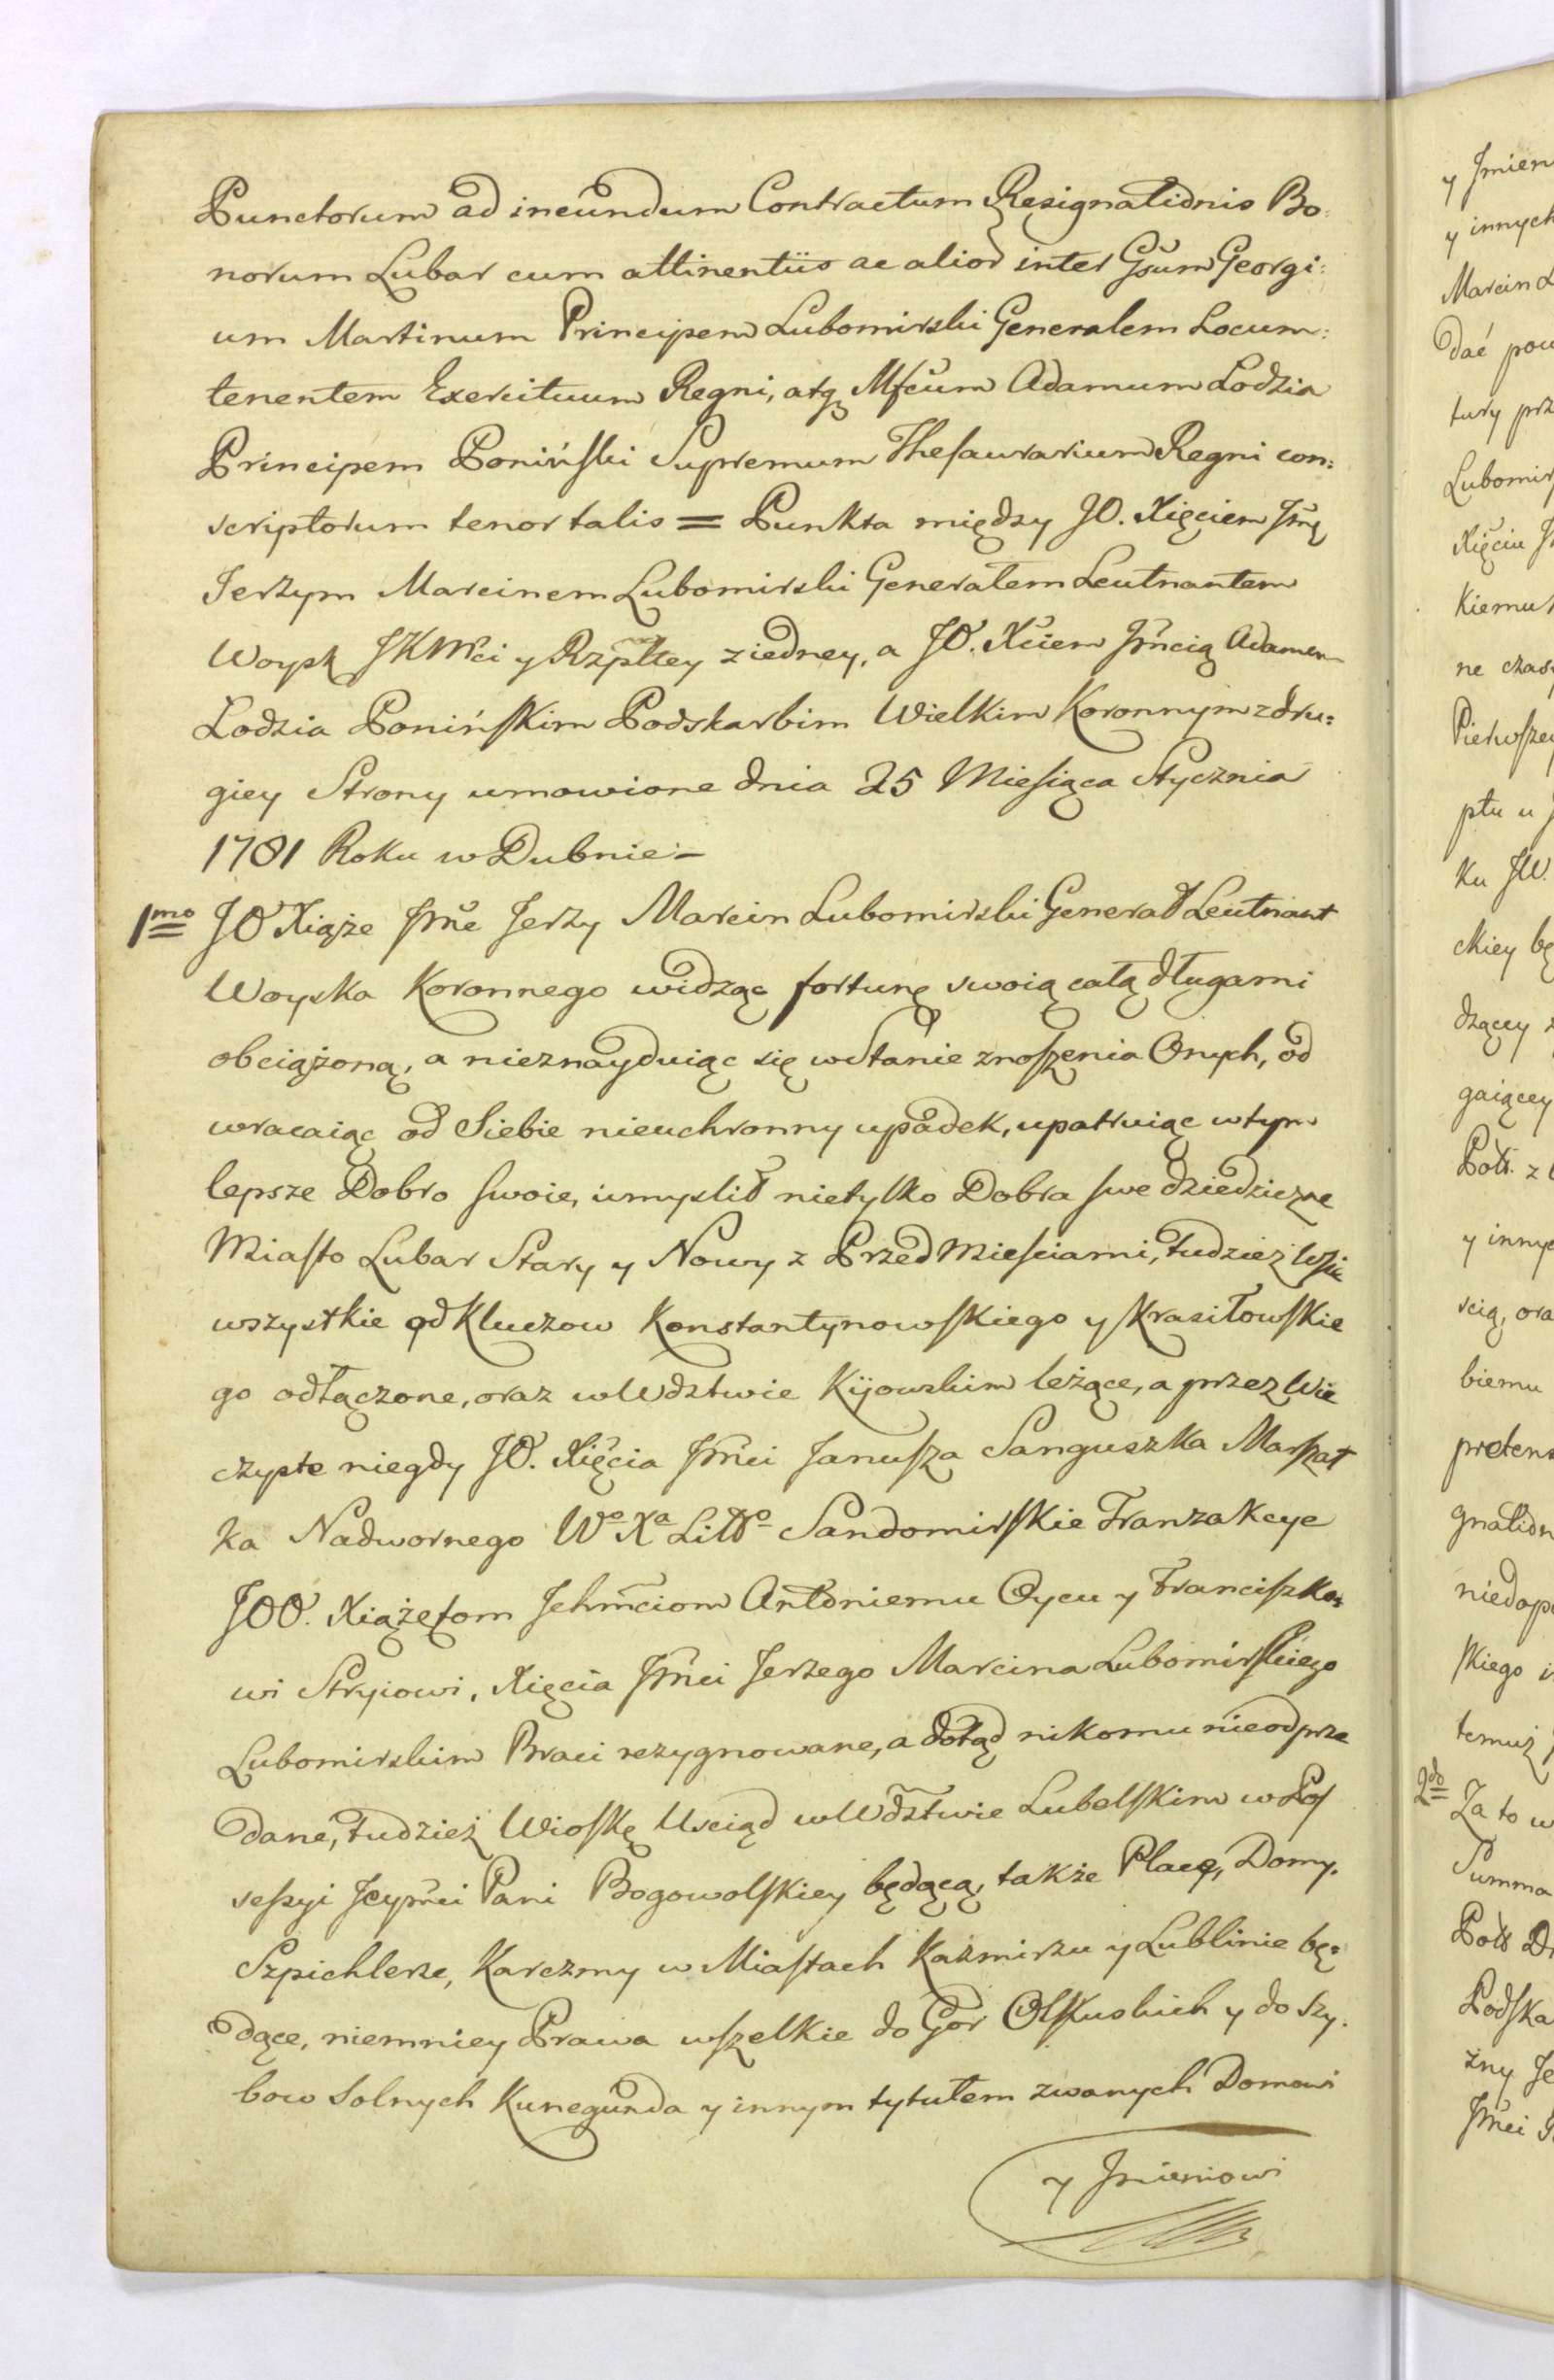 Punctorum ad ineundum Contractum Resignationis Bo:
norum Lubar cum attinentiis ac alior inter Gsum Georgi:
um Martinum Principem Lubomirski Generalem Locum:
tenentem Exercituum Regni, atq Mfcum Adamum Lodzia
Principem Poniński Supremum Thesaurarium Regni con:
scriptorum tenor talis = Punkta między JO. Xięciem Jmę
Jerzym Marcinem Lubomirski Generałem Leutnantem
Woysk JKMci y Rzpltey z iedney, a JO. Xciem Jmcią Adamem
Lodzia Ponińskim Podskarbim Wielkim Koronnym z dru:
giey Strony umowione dnia 25 Miesiąca Stycznia
1781 Roku w Dubnie –
1mo JO Xiąże Jmć Jerzy Marcin Lubomirski Generał Leutnant
Woyska Koronnego widząc fortunę swoią całą długami
obciążoną, a nieznayduiąc się w Stanie znoszenia Onych, od
wracaiąc od Siebie nieuchronny upadek, upatruiąc w tym
lepsze Dobro swoie, umyslił nietylko Dobra swe dziedziczne
Miasto Lubar Stary y Nowy z Przed Miesciami, tudzież Wsie
wszystkie od Kluczow Konstantynowskiego y Krasiłowskie
go odłączone, oraz w Wdztwie Kijowskim leżące, a przez Wie
czyste niegdy JO. Xięcia Jmci Janusza Sanguszka Marszał
ka Nadwornego Wo Xa Litto Sandomirskie Tranzakcye
JOO. Xiążętom Jchmciom Antoniemu Oycu y Franciszko:
wi Stryiowi, Xięcia Jmci Jerzego Marcina Lubomirskiego
Lubomirskim Braci rezygnowane, a dotąd nikomu nieodprze
dane, tudzież Wioskę Usciąd w Wdztwie Lubelskim w Pos
sessyi Jeymci Pani Bogowolskiey będącą, także Place, Domy,
Szpichlerze, Karczmy w Miastach Kazmirzu y Lublinie bę:
dące, niemniey Prawa wszelkie do Gor Olkuskich y do Szy:
bow Solnych Kunegunda y innym tytułem zwanych Domowi
y Jmieniowi
y Jmien
y innych
Marcin L
dać pow
tury prz
Lubomir
Xięciu J
Kiemu
ne czas
Pierwszey
ptu u
ku JW.
ckiey bę
dzącey
gaiącey
Pols. z
y innyc
scią, ora
biemu
pretens
gnation
niedop
skiego i
temuż
2do Za to w
Summa
Pols
Podska
zny Je
Jmci